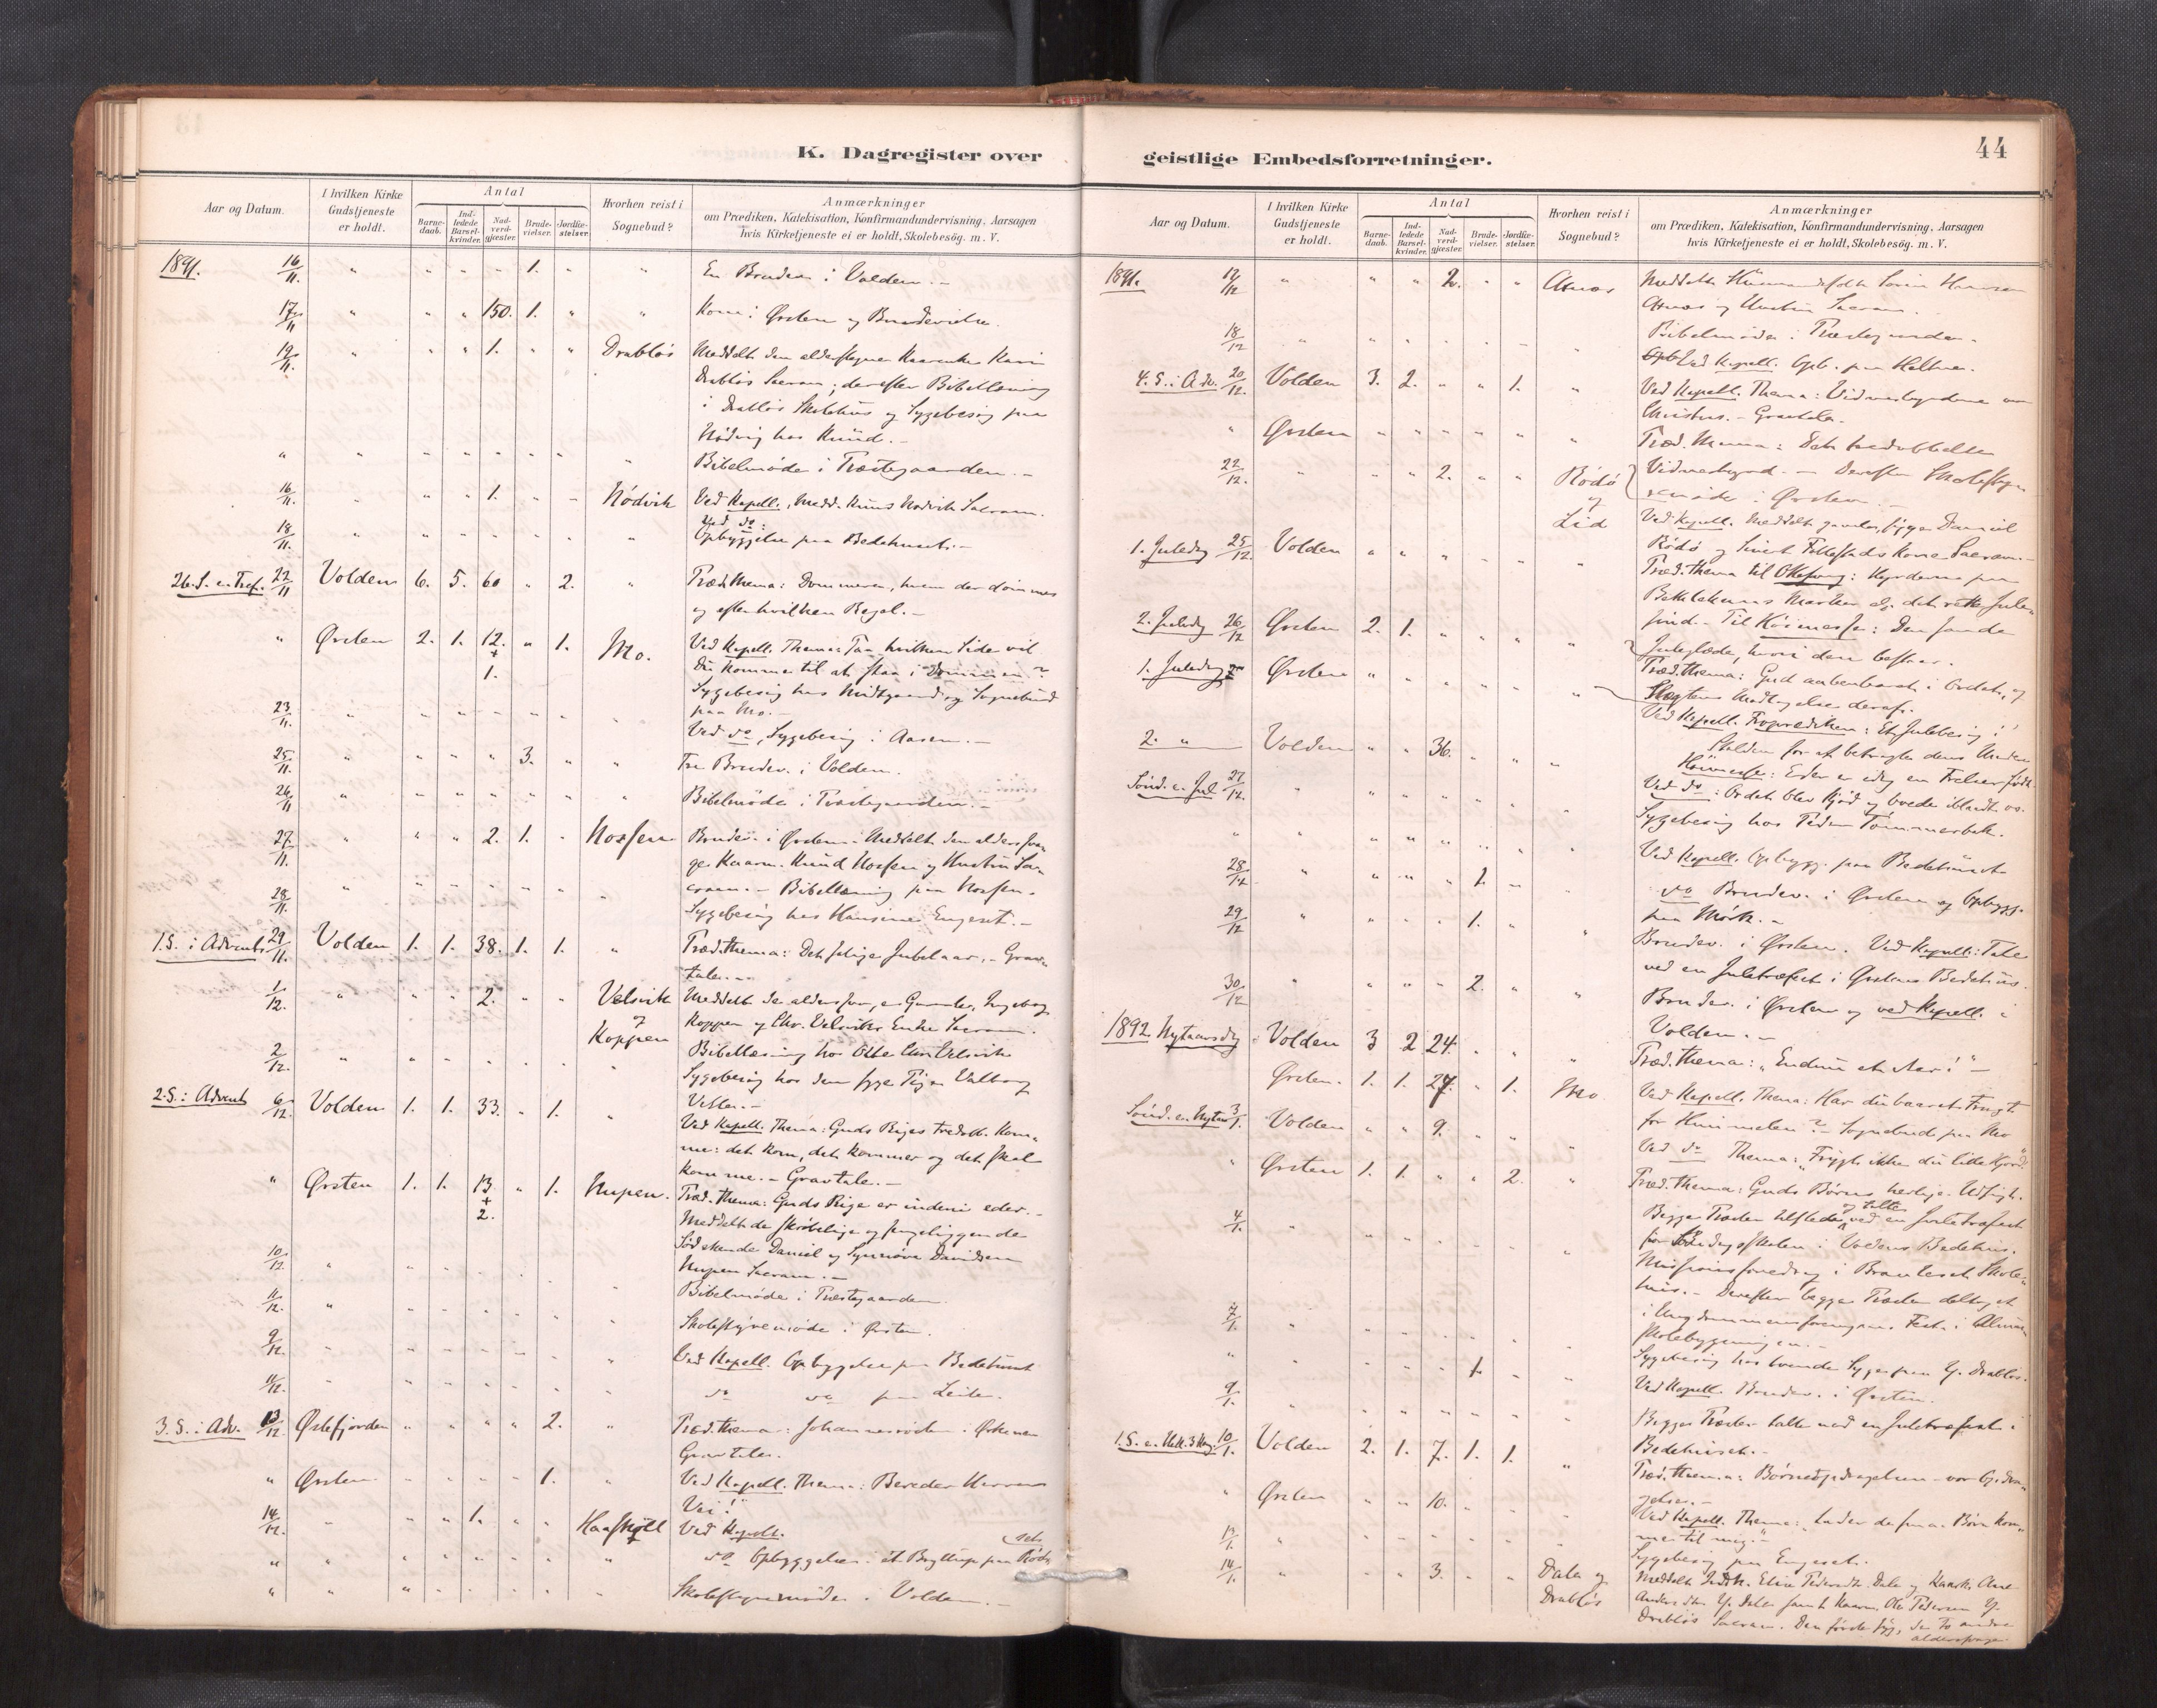 K. Dagregister over
Aar og Datum.
I hvilken Kirke Gudstjeneste er holdt.
Antal
Barne-daab.
Ind-ledede Barsel-kvinder.
Nad-verd-gjæster.
Brude-vielser.
Jordfæ-stelser.
Hvorhen reist i Sognebud?
Anmærkninger
om Prædiken, Katekisation, Konfirmandundervisning, Aarsagen
hvis Kirketjeneste ei er holdt, Skolebesög. m. V.
1891. 16/11. " " " " 1. " " En Brudev. i Volden.-
17/11 " " " 150. 1. " " Kom. i Ørsten og Brudevielse.
19/11. " " " 1. " " Drabløs Meddelt den
Drabløs Sacram.; derefter Bibellæsning
i Drabløs Skolehus og Sygebesøg paa
Nødvig hos Knud.-
" " " " " " " " Bibelmøde i Præstegaarden.-
16/11. " " " 1. " - Nødvik Ved Kapell., Medd. Nødvik Sacram.
Ved do:
18/11. " " " " " " " Opbyggelse paa Bedehuset.-
26. S. e. Tref. 22/11 Volden 6. 5. 60 " 2. " Præd. Thema: Dommeren, hvem der dømmes
og efter hvilken Regel.-
" Ørsten 2. 1. 12. + 1. " 1. Mo. Ved Kapell. Thema: Paa hvilken Side vil
Du komme til at staa i Dommen?
Sygebesøg hos Midtgaard og Sognebud
paa Mo.-
23/11. " " " " " " " Ved do, Sygebesøg i Aasen.-
25/11. " " " " 3. " " Tre Brudev. i Volden.
26/11 " " " " " " " Bibelmøde i Præstegaarden.-
27/11. " " " 2. 1. " Brudev. i Ørsten. Meddelt den alderssva-
ge Kaarm. Knud og Hustru Sa-
cram.- Bibellæsning paa
28/11. " " " " " " " Sygebesøg hos Hansine Engeset.-
1. S. i Advent 29/11. Volden 1. 1. 38. 1. 1. " Præd. thema: Det Jubelaar.- Grav-
tale.-
1/12. " " " 2. " " Velsvik og Koppen Meddelt de
Koppen og Chr. Velsviks Enke Sacram.
Bibellæsning hos Velsvik
2/12. " " " " " " " Sygebesøg hos den syge Pige Valborg
2. S. i Advent 6/12. Volden 1. 1. 33. " 1. " Ved Kapell. Thema: Guds Riges tredobb. Kom-
me: det kom, det kommer og det skal
komme.- Gravtale.-
" Ørsten 1. 1. 13 + 2. " 1. Nupen. Præd. Thema: Guds Rige er indeni eder.-
Meddelt de skrøbelige og sengeliggende
Sødskende Daniel og Synnøve Davidsen
Nupen Sacram.-
10/12. " " " " " " " Bibelmøde i Præstegaarden.
11/12. " " " " " " " Skolestyremøde i Ørsten.
9/12. " " " " " " " Ved Kapell. Opbyggelse paa Bedehuset
11/12. " " " " " " " do do paa
3. S. i Adv. 13/12. Østefjorden " " " " 2. " Præd. thema: Johannes
Gravtaler.
" Ørsten " " " " 1. " Ved Kapell. Thema: Bereder Herrens
Vei!"
14/12. " " " 1. " " Ved Kapell.
" " " " " " " " do Opbyggelse i et Bryllup paa
" " " " " " " " Skolestyremøde i Volden.-
geistlige Embedsforretninger.
44
Aar og Datum.
I hvilken Kirke Gudstjeneste er holdt.
Antal
Barne-daab.
Ind-ledede Barsel-kvinder.
Nad-verd-gjæster.
Brude-vielser.
Jordfæ-stelser.
Hvorhen reist i Sognebud?
Anmærkninger
om Prædiken, Katekisation, Konfirmandundervisning, Aarsagen
hvis Kirketjeneste ei er holdt, Skolebesög. m. V.
1891. 17/12 " " " 2. " " Aanæs Meddelt
Aanæs og Hustru Sacram.
18/12 " " " " " - " Bibelmøde i Præstegaarden.
Ved Kapell. Opb. paa
4. S. i Adv. 20/12. Volden 3. 2. " " 1. " Ved Kapell. Thema: Vidnesbyrdene om
Christus.- Gravtale.
" Ørsten " " " " " " Præd. Thema: Det tredobbelte
Vidnesbyrd.- Derefter Skolesty-
remøde i Ørsten.-
22/12. " " " 2. " " Rødø og Lid Ved Kapell. Meddelt
Rødø og Follestads Kone Sacram.-
1. Juledag 25/12. Volden " " " " " " Præd. thema til Ottesang: Hyrderne paa
Bethlehems Marker
Til Høimesse: Den sande
Juleglæde, hvori den bestaar.
2. Juledag 26/12 Ørsten 2. 1. " " " " Præd. thema: Gud aabenbaret i Ordet, og
Slægtens Modtagelse deraf.
1. Juledag Ørsten " " " " " " Ved Kapell. Froprædiken: Et Julebesøg i
Stalden for at betragte dens Under.
Høimesse: Eder er idag en Frelser født.
2. " Volden " " 36. " " " Ved do: Ordet blev Kjød og boede iblandt os.
Sönd. e. Jul 27/12. " " " " " " " Sygebesøg hos Peder Tømmerbak.
" " " " " " " " Ved Kapell. Opbygg. paa Bedehuset.
28/12 " " " " 1. - " do Brudev. i Ørsten og Opbygg.
paa Mørk.-
29/12 " " " " 1. " " Brudev. i Ørsten. Ved Kapell: Tale
ved en Juletræfest i Ørstens Bedehus.
30/12 " " " " 2. " " Brudev. i Ørsten og ved Kapell. i
Volden.-
1892. Nytaarsdg Volden 3 2 24. " " " Præd. Thema: „Endnu et Aar!"-
Ørsten. 1. 1. 27. " 1. Mo Ved Kapell. Thema: Har du baaret Frugt
for Himmelen?- Sognebud paa Mo
Sönd. e. Nytaar 3/1. Volden " " 9. " " " Ved do Thema: „Frygt ikke du lille Hjord"
" Ørsten 1. 1. " " 2. " Præd. Thema: Guds Børns herlige Udsigt.
4/1. " " " " " " " Begge Præster tilstede og talte ved en Juletræfest
for Söndagsskolen i Voldens Bedehus.
Missionsforedrag i Skole-
hus.- Derefter begge Præster deltaget
i Ungdomsforeningens Fest i Almue-
skolebygningen.-
7/1. " " " " " " " Sygebesøg hos tvende Syge paa Y. Drabløs.
" " " " " 1. " " Ved Kapell. Brudev. i Ørsten.
9/1. " " " " " " " Begge Præster talte ved en Juletræfest i
Bedehuset.-
1. S. e. Hell. 3 Kong. 10/1. Volden 2. 1. 7. 1. 1. " Præd. Thema: Børneopdragelsen - vor Opdra-
gelse.-
" Ørsten " " 10. " " " Ved Kapell. Thema: „Lader de smaa Børn kom-
me til mig."-
13/1. " " " " " " " Sygebesøg paa Engeset.
14/1. " " " 3. " " Dale og Drabløs Meddelt Elise Pedersdtr. Dale og Kaark. Ane
Andersdtr. Y. Dale samt Kaarm. Ole Pedersen Y.
Drabløs Sacram. Den første syg, de to andre
alderssvage.